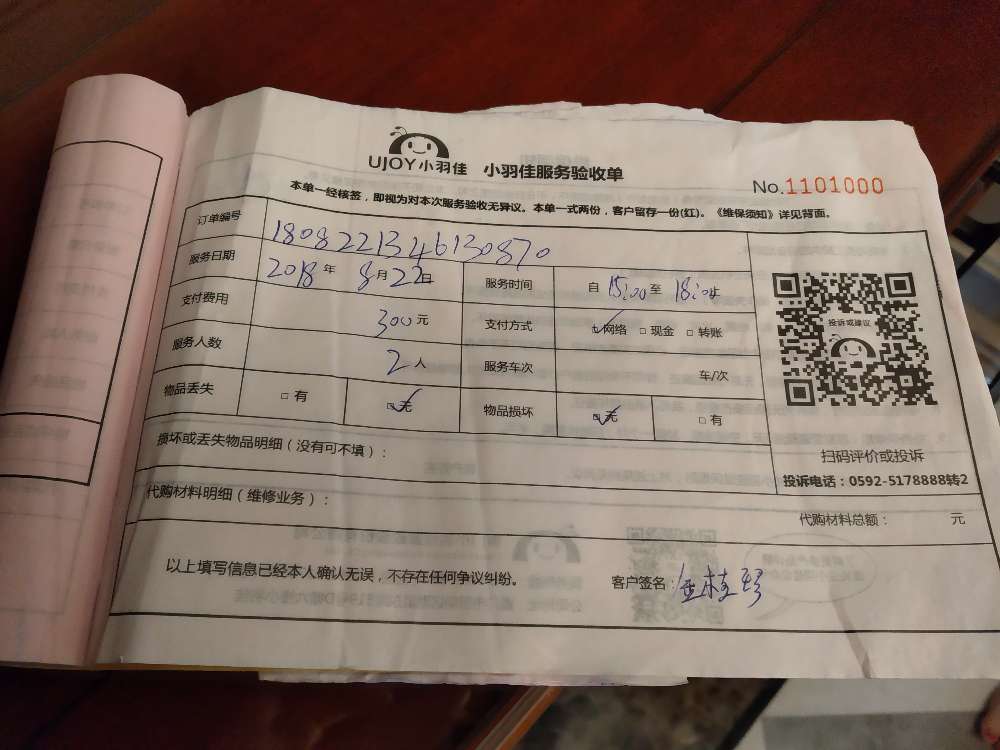 UJOY小羽佳 小羽佳服务验收单
No.1101000
本单一经核签，即视为对本次服务验收无异议。本单一式两份，客户留存一份(红)。《维保须知》详见背面。
订单编号 1808221346130870
服务日期 2018年8月22日 服务时间 自15:00至18:00止
支付费用 300元 支付方式 ☑网络 □现金 □转账
服务人数 2人 服务车次 车/次
物品丢失 □有 ☑无 物品损坏 ☑无 □有
投诉或建议
扫码评价或投诉
投诉电话：0592-5178888转2
损坏或丢失物品明细（没有可不填）：
代购材料明细（维修业务）：
代购材料总额： 元
以上填写信息已经本人确认无误，不存在任何争议纠纷。 客户签名：